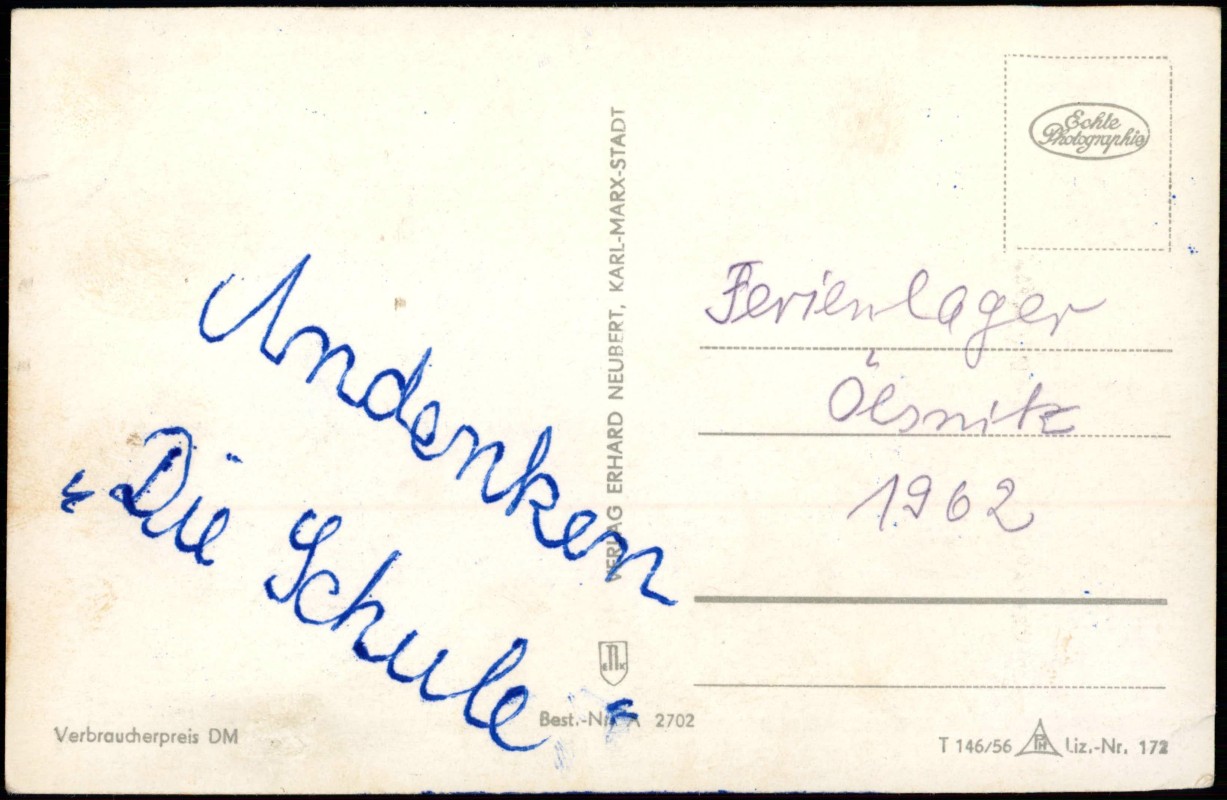 Echte
Photographie
VERLAG ERHARD NEUBERT, KARL-MARX-STADT
Andenken
"Die Schule"
Ferienlager
Ölsnitz
1962
ENK
Best.-Nr. A 2702
Verbraucherpreis DM
T 146/56 PH Liz.-Nr. 172